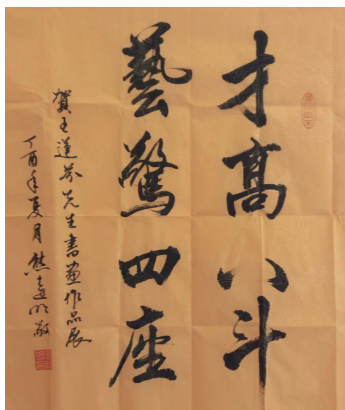 才高八斗
藝驚四座
賀王蓮芬先生書画作品展
丁酉年夏月熊遠明敬